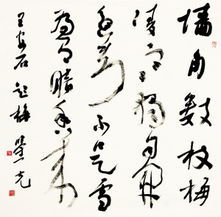 墙角数枝梅
凌寒独自開
遥知不是雪
為有暗香来
王安石 詠梅